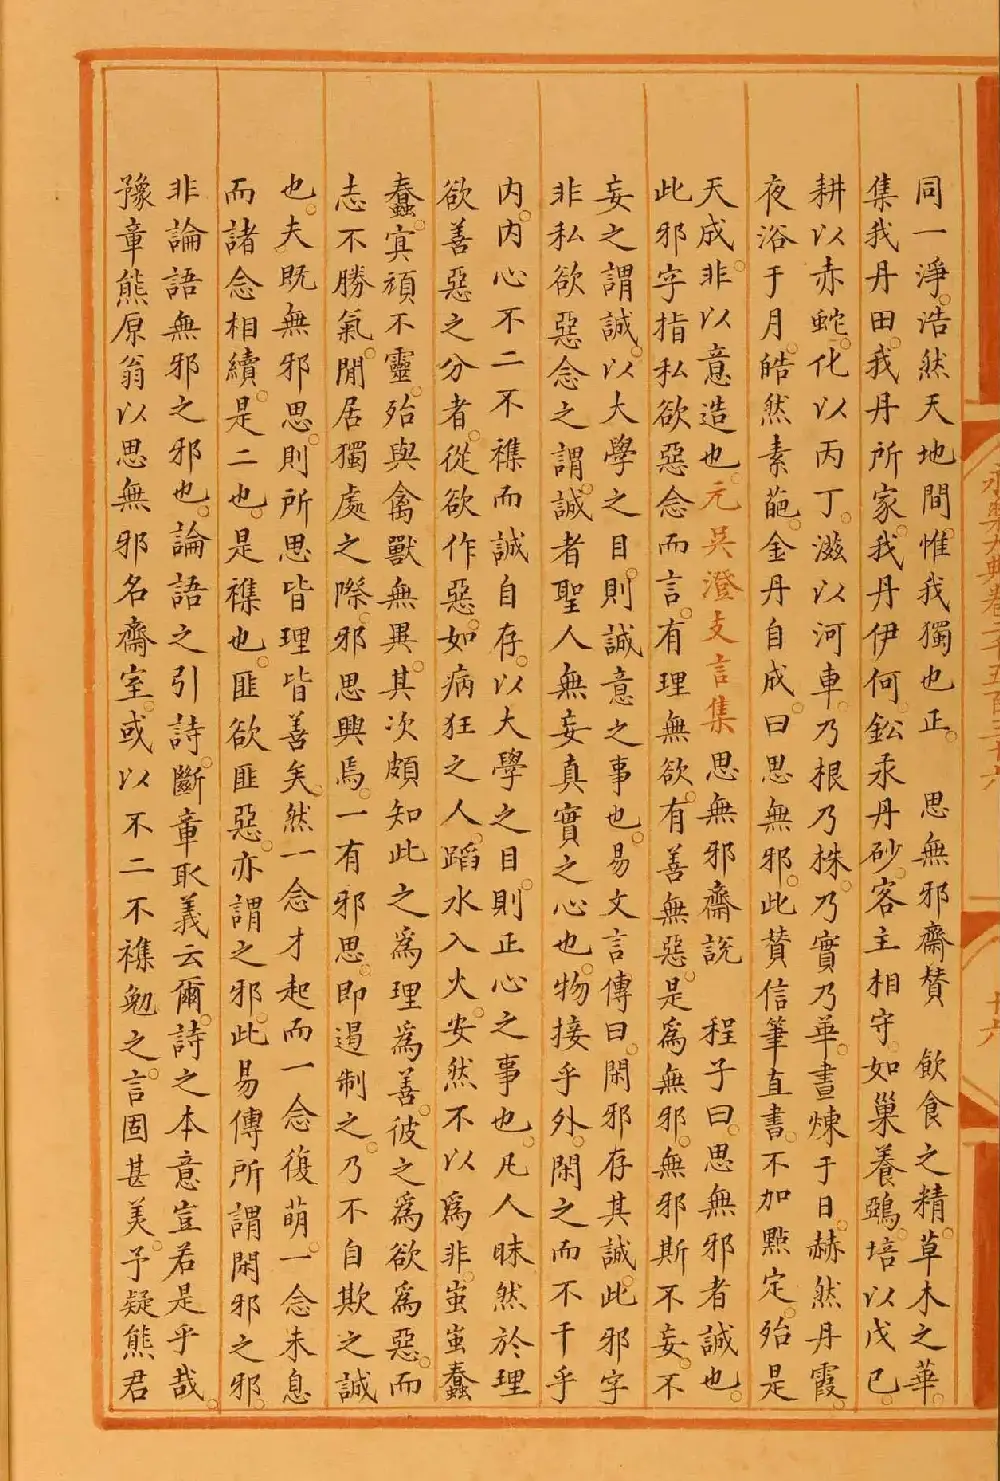 同一淨浩然天地間惟我獨也正 思無邪齋贊 飲食之精草木之華
集我丹田我丹所家我丹伊何鈆汞丹砂客主相守如巢養鵶培以戊己
耕以赤蛇化以丙丁滋以河車乃根乃株乃實乃華晝煉于日赫然丹霞
夜浴于月皓然素葩金丹自成曰思無邪此贊信筆直書不加點定殆是
天成非以意造也元吳澄支言集思無邪齋說 程子曰思無邪者誠也
此邪字指私欲惡念而言有理無欲有善無惡是爲無邪無邪斯不妄不
妄之謂誠以大學之目則誠意之事也易文言傳曰閑邪存其誠此邪字
非私欲惡念之謂誠者聖人無妄真實之心也物接乎外閑之而不干乎
內內心不二不襍而誠自存以大學之目則正心之事也凡人昧然於理
欲善惡之分者從欲作惡如病狂之人蹈水入火安然不以爲非蚩蚩蠢
蠢寘頑不靈殆與禽獸無異其次頗知此之爲理爲善彼之爲欲爲惡而
志不勝氣閒居獨處之際邪思興焉一有邪思即遏制之乃不自欺之誠
也夫既無邪思則所思皆理皆善矣然一念才起而一念復萌一念未息
而諸念相續是二也是襍也匪欲匪惡亦謂之邪此易傳所謂閑邪之邪
非論語無邪之邪也論語之引詩斷章取義云爾詩之本意豈若是乎哉
豫章熊原翁以思無邪名齋室或以不二不襍勉之言固甚美予疑熊君
永樂大典卷二千五百三十六
廿六